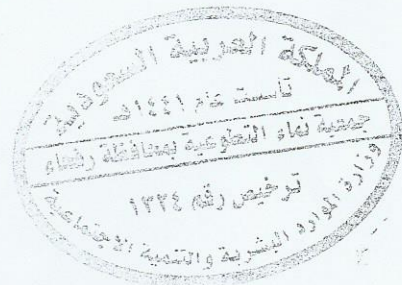 المملكة العربية السعودية
تأسست عام ١٤٤١هـ
جمعية نماء التطوعية بمحافظة رفحاء
ترخيص رقم ١٣٢٤
وزارة الموارد البشرية والتنمية الاجتماعية